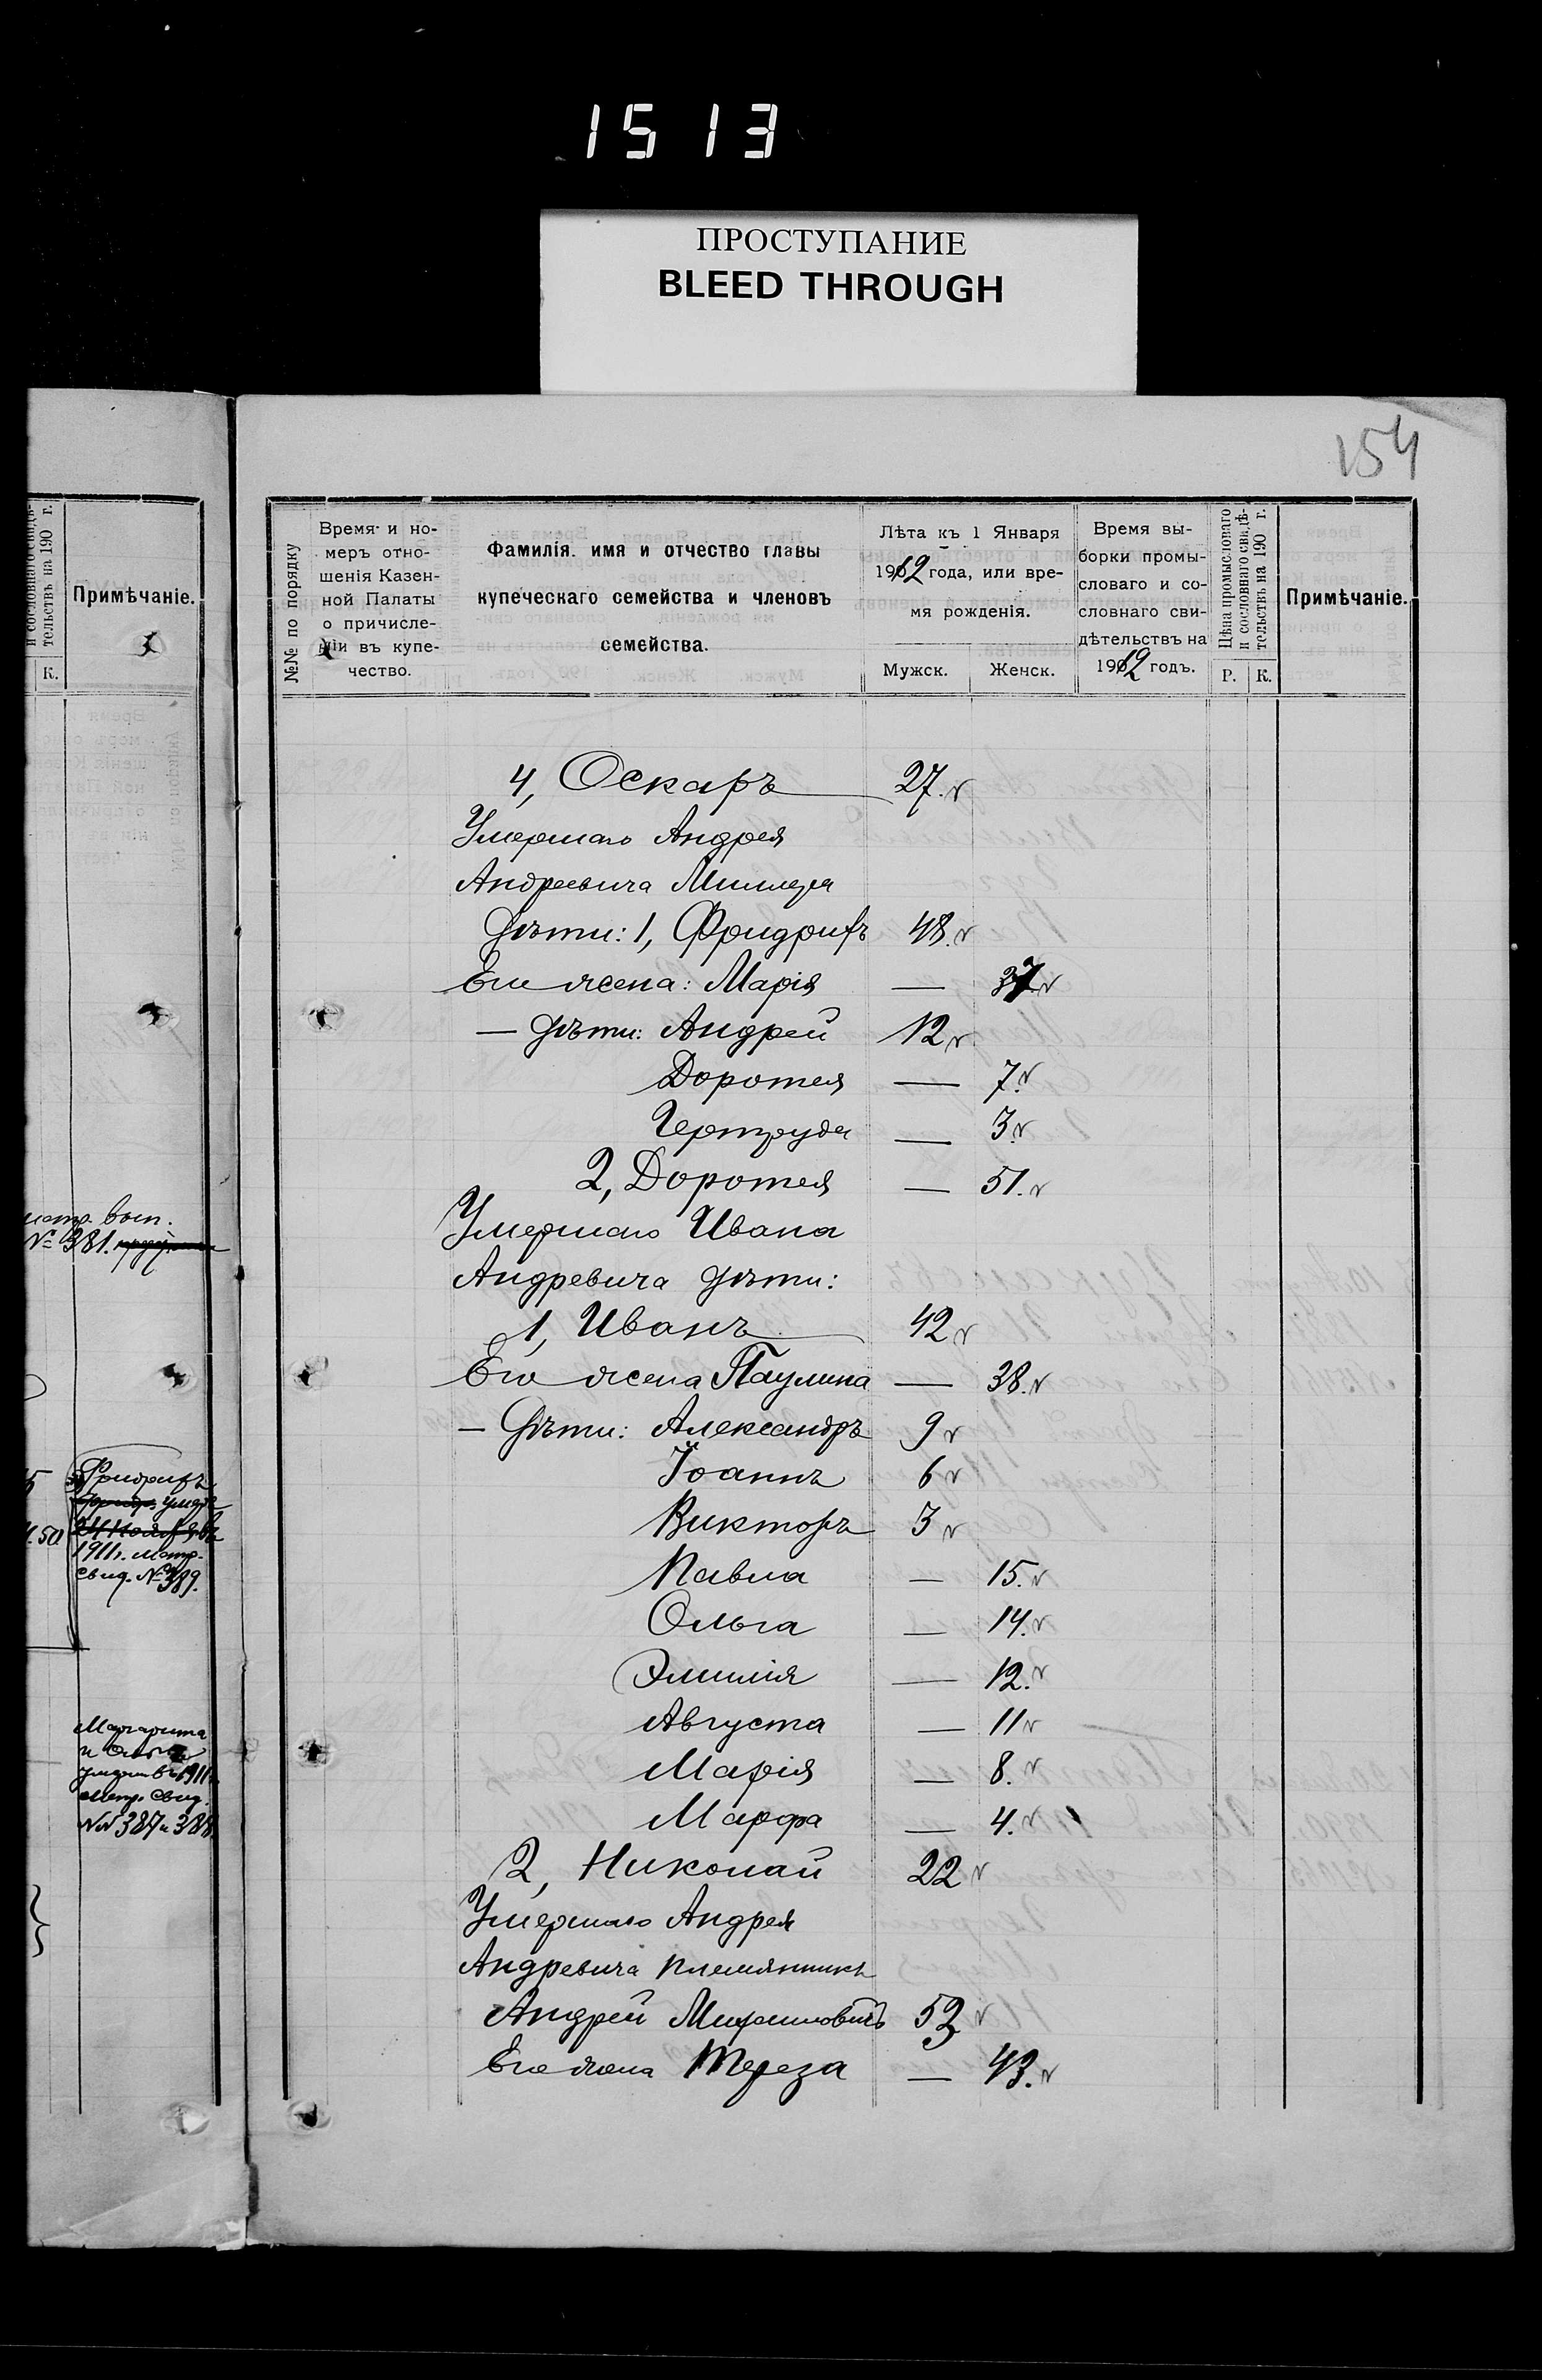 1513
ПРОСТУПАНИЕ
BLEED THROUGH
154
и сословнаго свидѣ-
тельствъ на 190 г.
К.
Примѣчаніе.
метр. вып.
№ 381.
Фридрихъ
умеръ
24 Ноября въ
1911 г. метр.
свид. № 389.
50
Маргарита
и Ольга
умерли въ 1911 г.
Метр. Свид.
№№ 387 и 388.
№№ по порядку
Время и но-
меръ отно-
шенія Казен-
ной Палаты
о причисле-
ніи въ купе-
чество.
Фамилія. имя и отчество главы
купеческаго семейства и членовъ
семейства.
Лѣта къ 1 Января
1912 года, или вре-
мя рожденія.
Мужск. Женск.
Время вы-
борки промы-
словаго и со-
словнаго сви-
дѣтельствъ на
1912 годъ.
Цѣна промысловаго
и сословнаго свидѣ-
тельствъ на 190 г.
Р. К.
Примѣчаніе.
4, Оскаръ 27.
Умершаго Андрея
Андреевича Миллера
Дѣти: 1, Фридрихъ 48.
Его жена: Марія — 37
— Дѣти: Андрей 12
Доротея — 7.
Гертруда — 3.
2, Доротея — 51.
Умершаго Ивана
Андревича дѣти:
1, Иванъ 42
Его жена Паулина — 38.
— Дѣти: Александръ 9
Іоаннъ 6
Викторъ 3
Павла — 15.
Ольга — 14.
Эмилія — 12.
Августа — 11
Марія — 8.
Марфа — 4.
2, Николай 22
Умершаго Андрея
Андревича племянникъ
Андрей Михайловичъ 52
Его жена Тереза — 43.